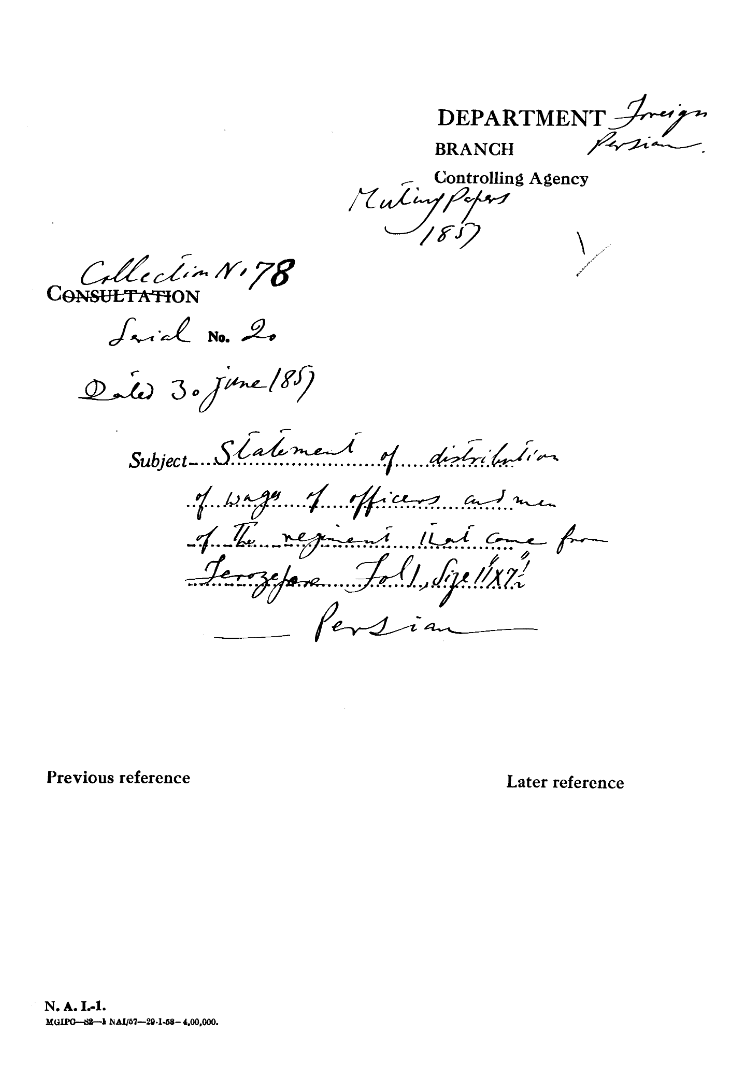 DEPARTMENT Foreign
BRANCH Persian.
Controlling Agency
Mutiny Papers
1857
Collection No 78
CONSULTATION
Serial No. 20
Dated 30 June 1857
Subject Statement of distribution
of wages of officers and men
of the regiment that come from
Ferozepore Fol 1, Size 11"x7½"
Persian
Previous reference
Later reference
N. A. I.-1.
MGIPC—S2—1 NAI/57—29-1-58—4,00,000.